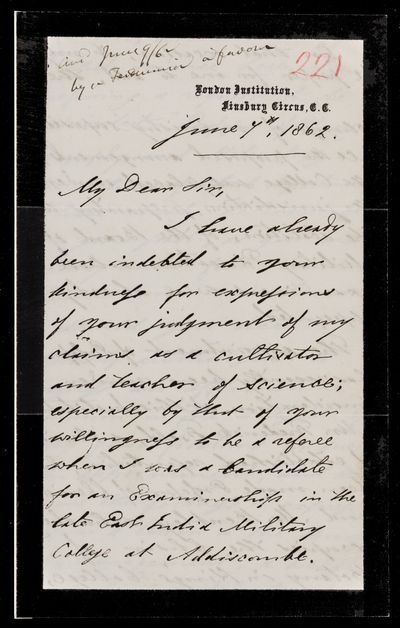 and June 9/62
by a Testimonial a favour
221
London Institution,
Finsbury Circus, E.C.
June 7th, 1862.
My Dear Sir,
I have already
been indebted to your
kindness for expressions
of your judgment of my
claims as a cultivator
and teacher of science;
especially by that of your
willingness to be a referee
when I was a Candidate
for an Examinership in the
late East India Military
College at Addiscombe.